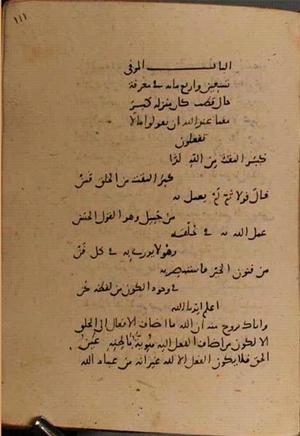 ١١١
الباب الموفى
تسعين واربع مائه في معرفة
حال قطب كان منزله كبر
مقتا عند الله ان تقولوا ما لا
تفعلون
كبر المقت من الله لذا
كبر المقت من الخلق فمن
قال قولا ثم لم يعمل به
من جميل وهو القول الحسن
عمل الله به في خلقه
وهو لا يدري به في كل فن
من فنون الخير فاستبصره
في وجود الكون من لفظة كن
اعلم ايدنا الله
واياك بروح منه ان الله ما اضاف الافعال الى الخلق
الا لكون من اضاف الفعل اليه هويته باطنه عين
الحق فلا يكون الفعل الا لله غير انه من عباد الله